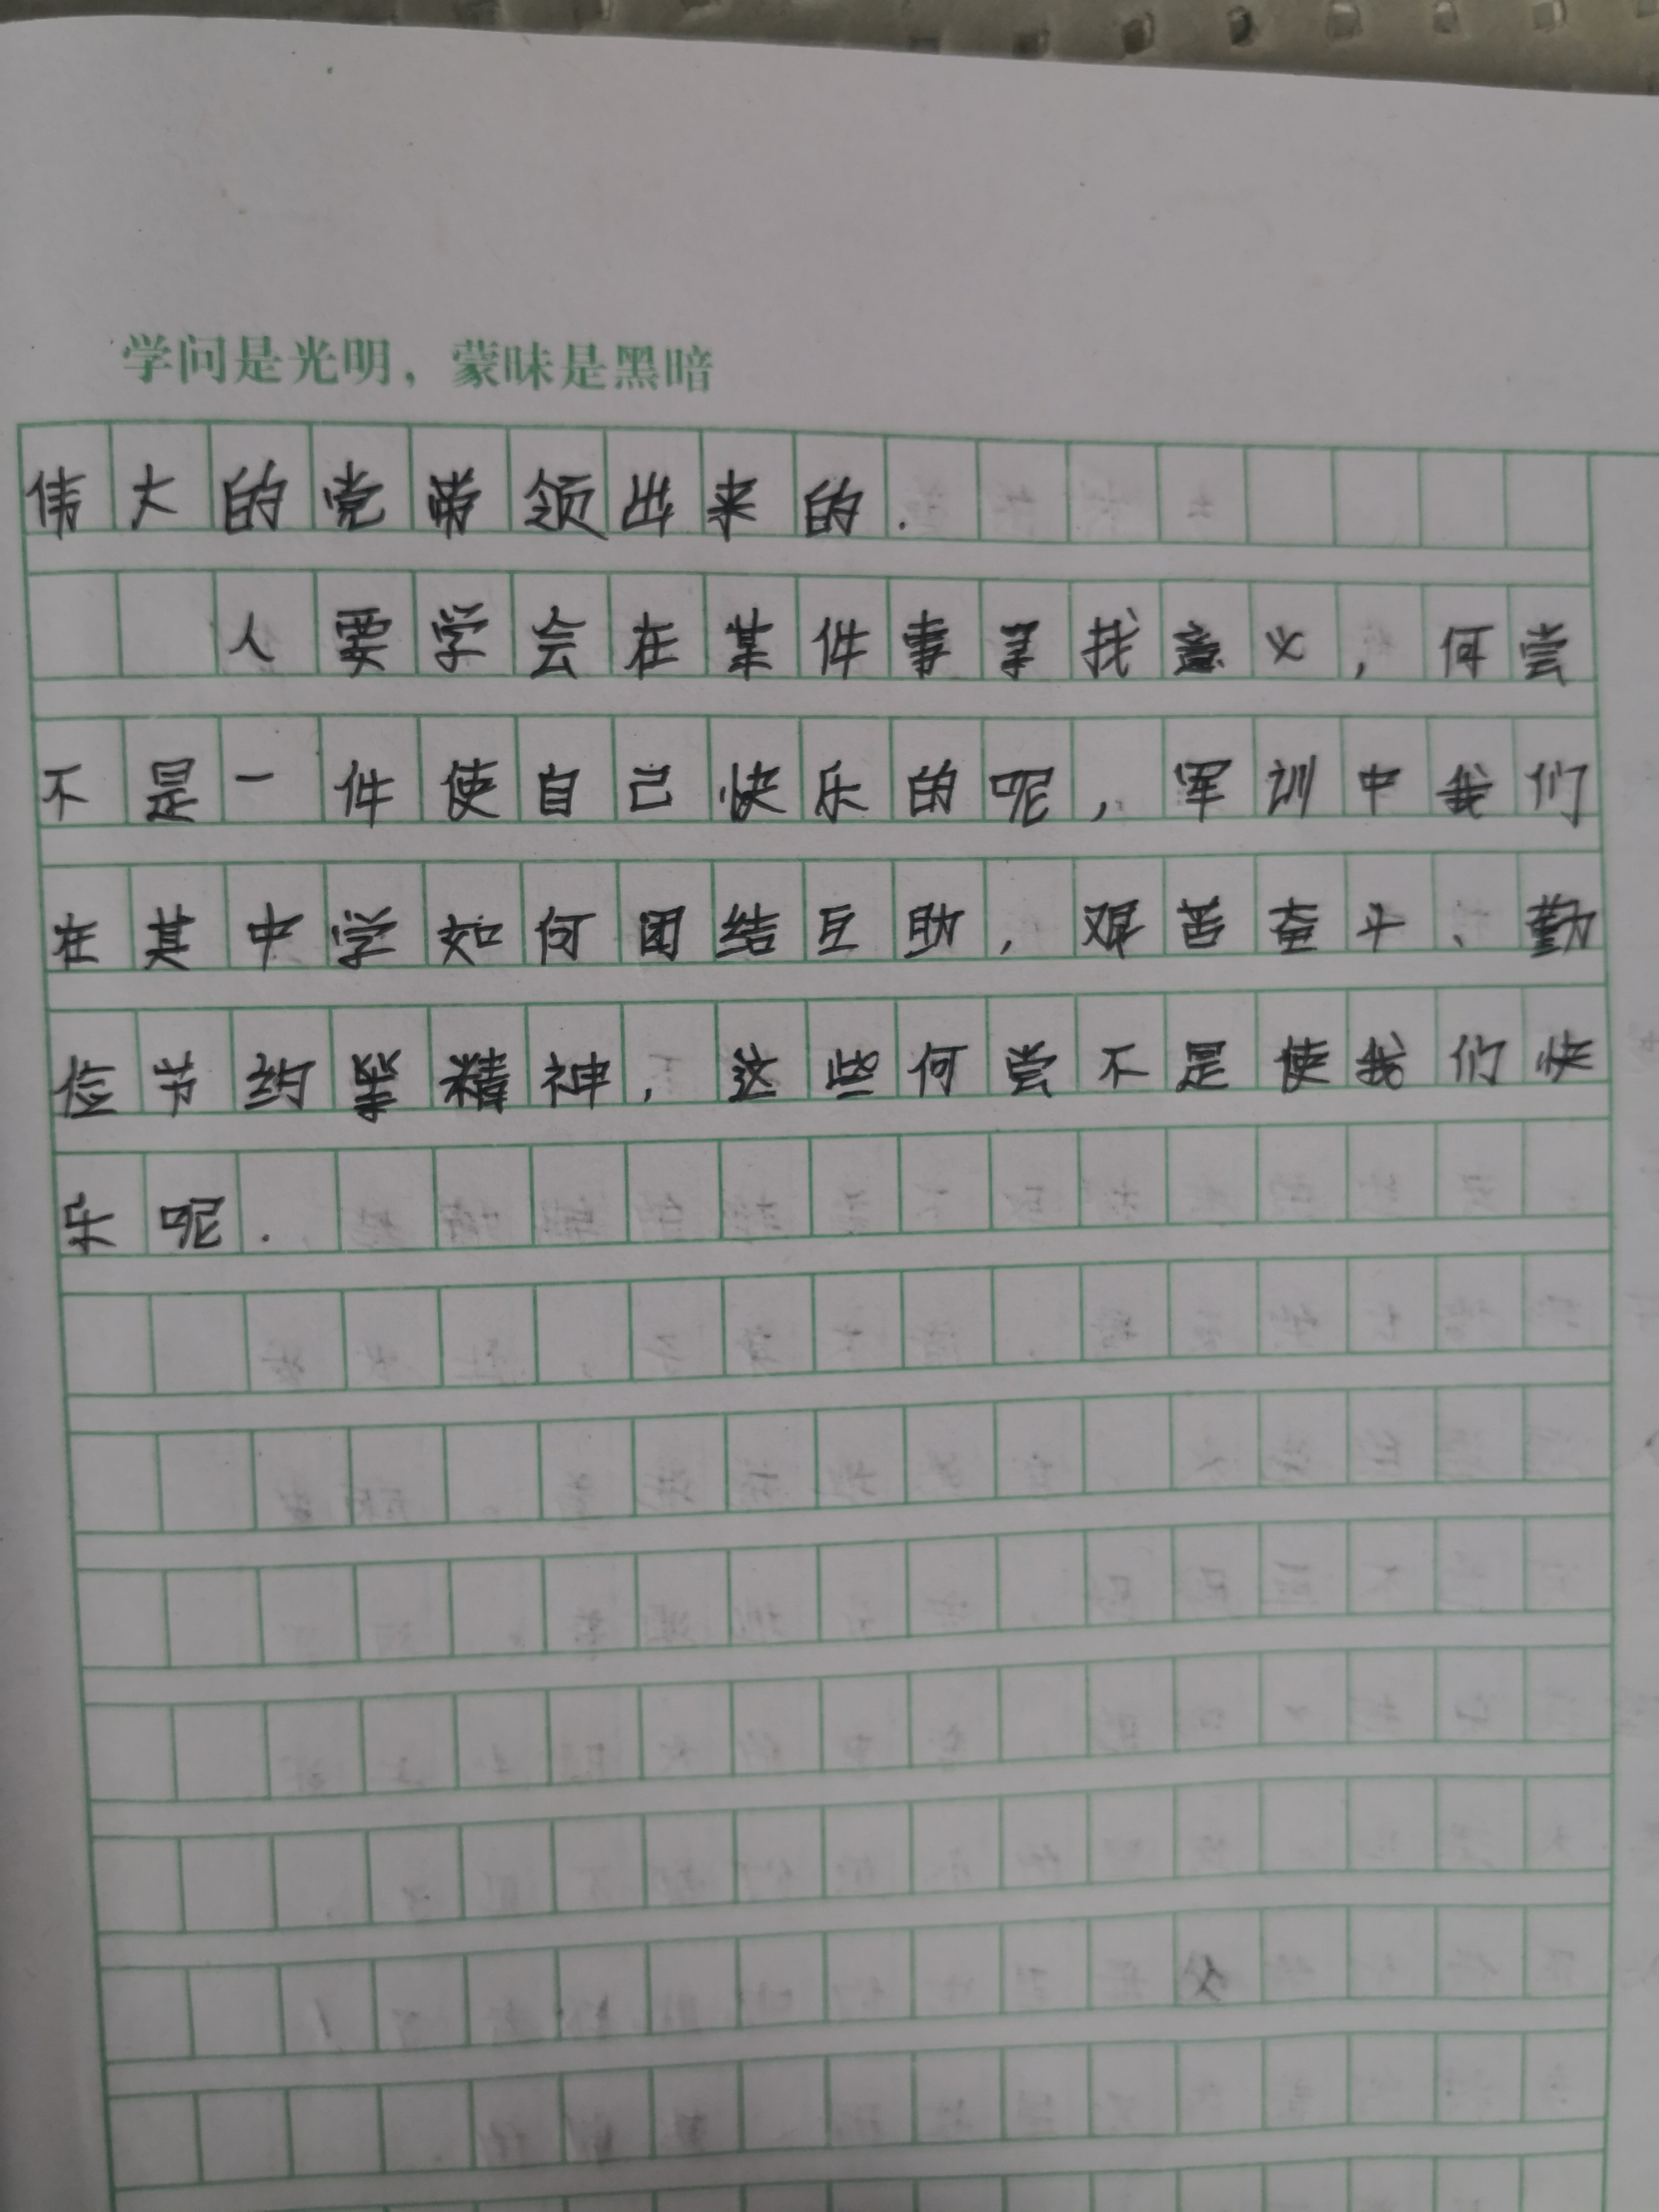 学问是光明，蒙昧是黑暗
伟大的党带领出来的.
人要学会在某件事寻找意义，何尝
不是一件使自己快乐的呢，军训中我们
在其中学如何团结互助，艰苦奋斗、勤
俭节约等精神，这些何尝不是使我们快
乐呢.